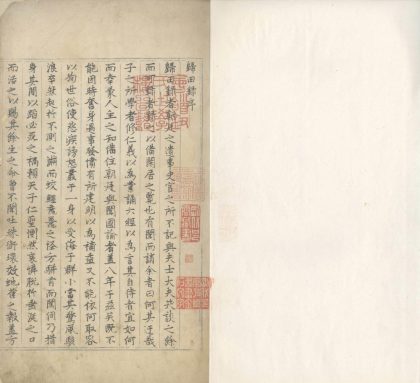 歸田錄序
歸田錄者朝廷之遺事史官之所不記與夫士大夫笑談之餘
而可錄者錄之以備閑居之覽也有聞而誚余者曰何其迂哉
子之所學者修仁義以為業誦六經以為言其自待者宜如何
而幸蒙人主之知備位朝廷與聞國論者蓋八年于茲矣既不
能因時奮身遇事發憤有所建明以為補益又不能依阿取容
以徇世俗使怨疾謗怒叢于一身以受侮于群小當其驚風駭
浪卒然起於不測之淵而蛟鱷黿鼉之怪方駢首而闖伺乃措
身其間以蹈必死之禍賴天子仁聖惻然哀憐脫於垂涎之口
而活之以賜其餘生之命曾不聞吐珠銜環效蛇雀之報蓋方